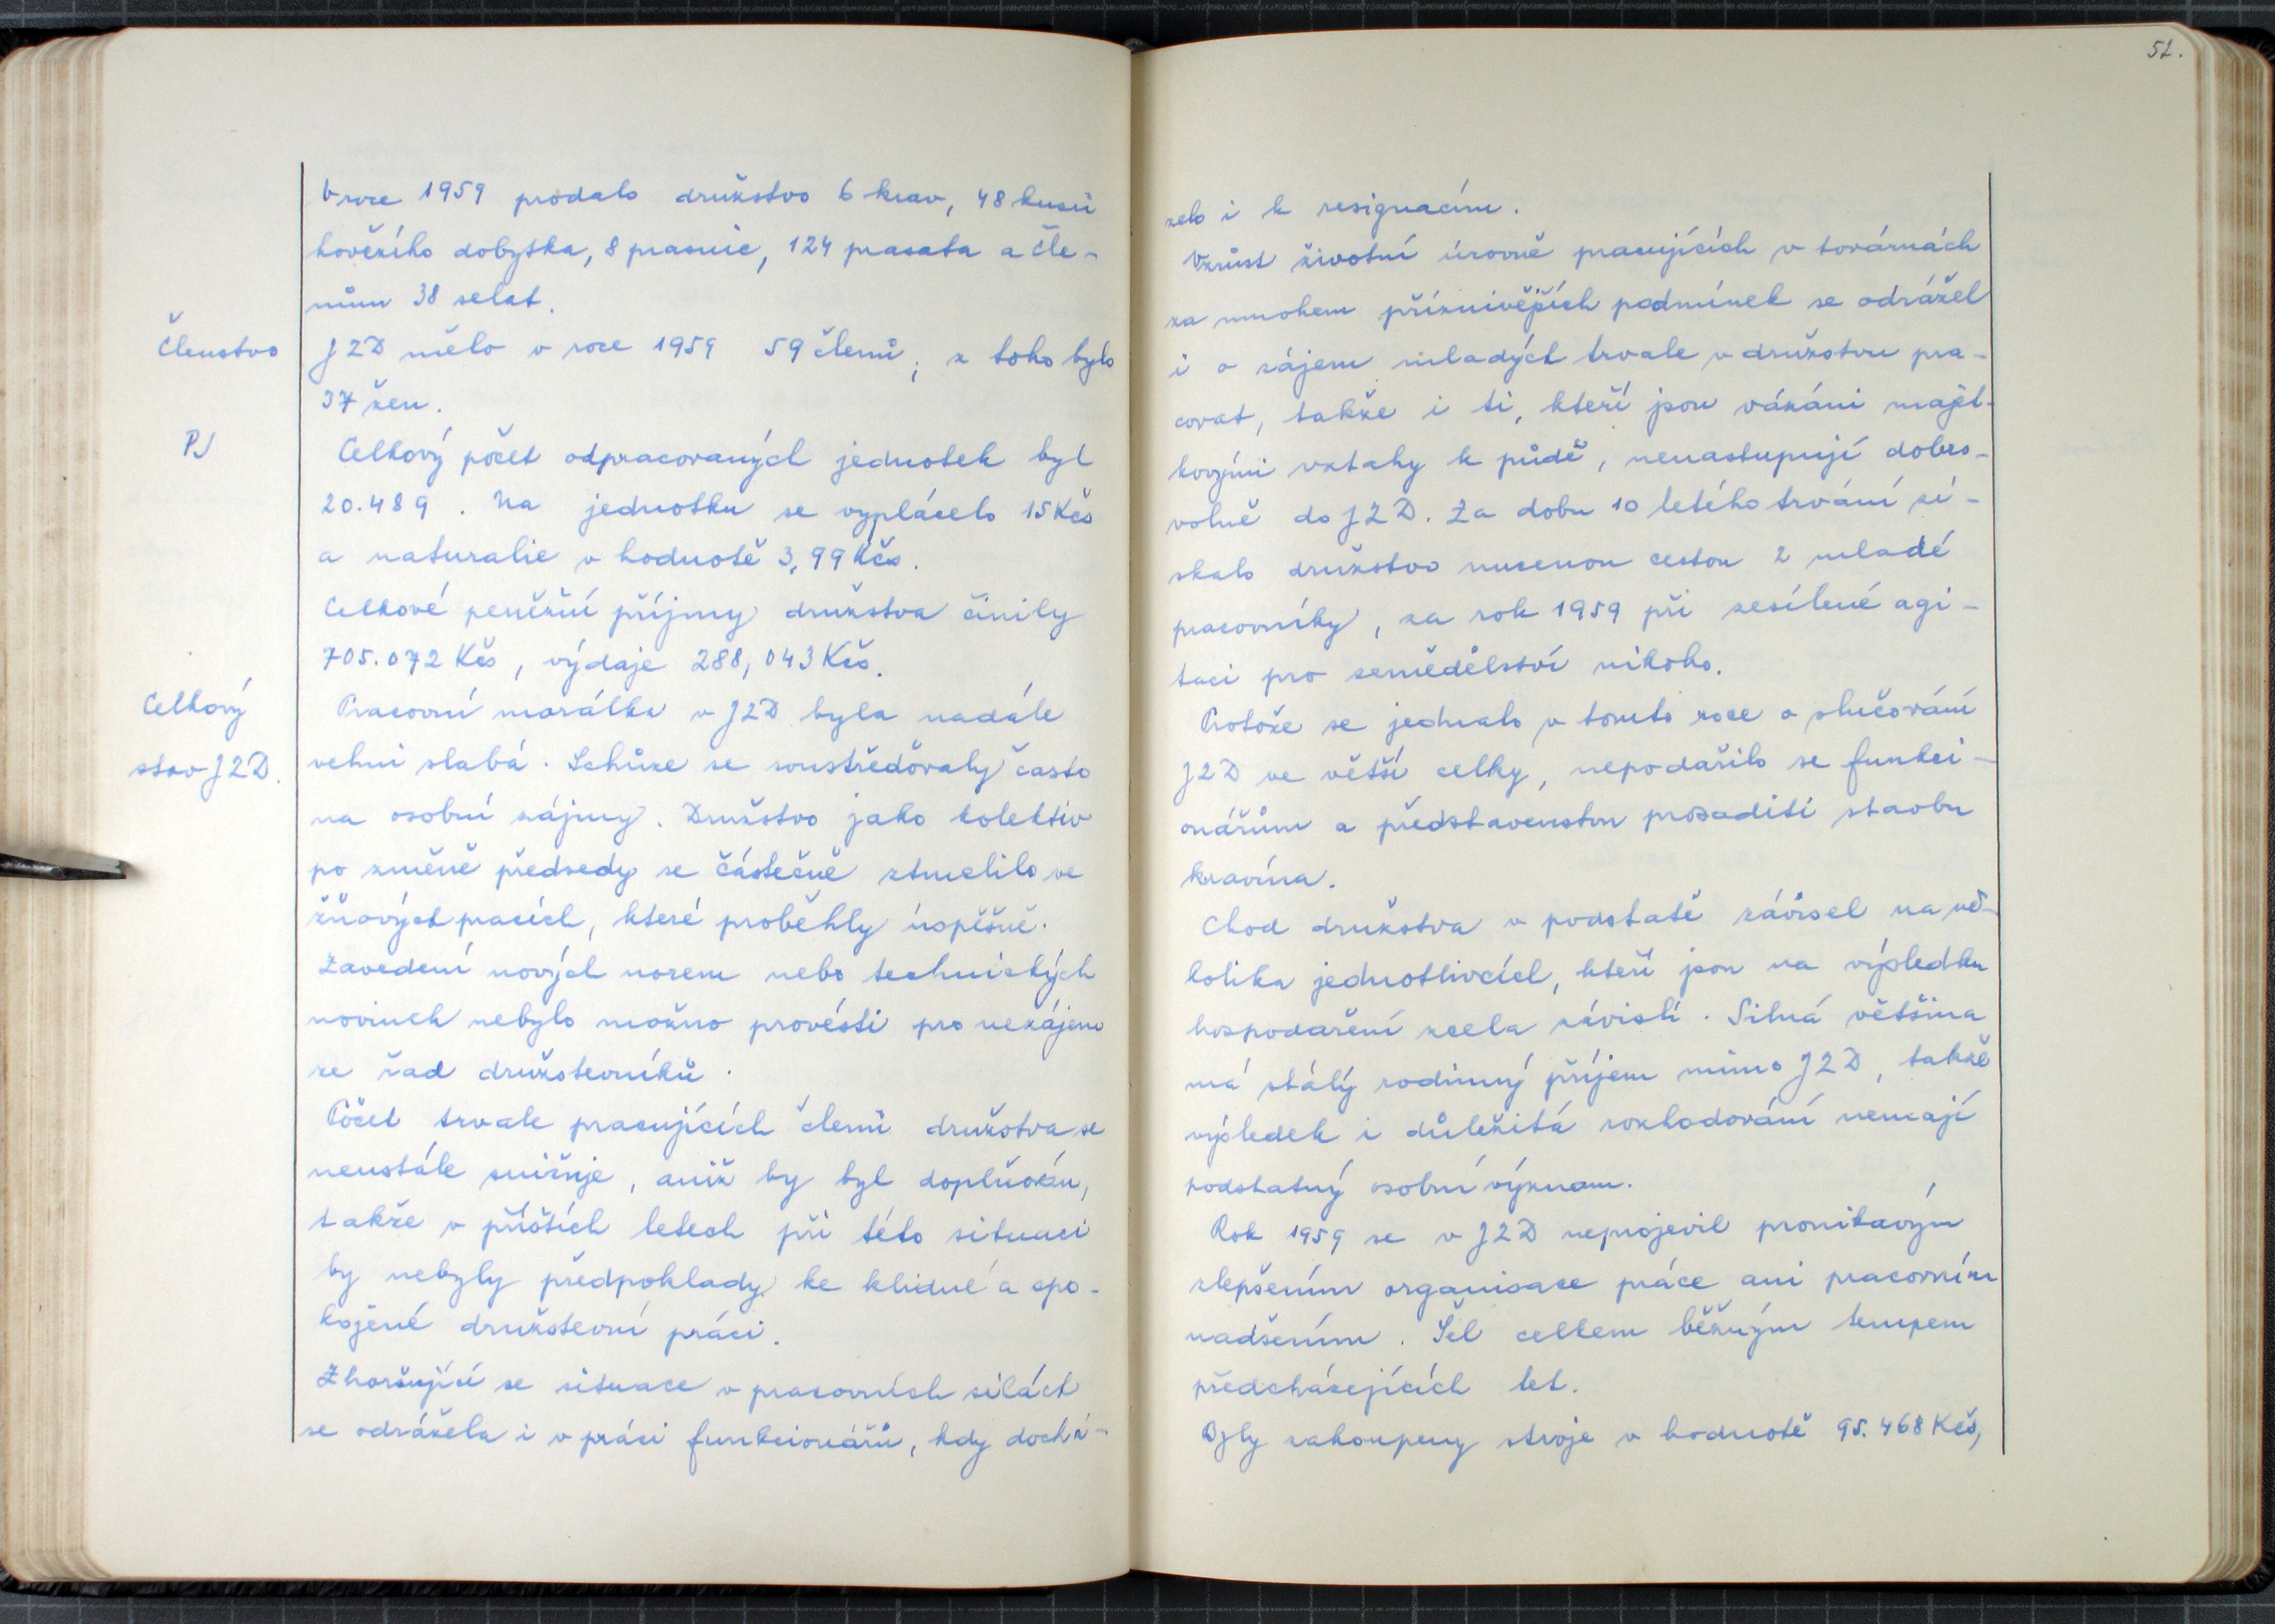 V roce 1959 prodalo družstvo 6 krav, 48 kusů
hověžího dobytka, 8 prasnic, 124 prasata a čle-
nům 38 selat.
Členstvo
JZD mělo v roce 1959 59 členů, z toho bylo
37 žen.
PJ
Celkový počet odpracovaných jednotek byl
20.489. Na jednotku se vyplácelo 15 Kčs
a naturalie v hodnotě 3,99 Kčs.
Celkové peněžní příjmy družstva činily
705.072 Kčs, výdaje 288,043 Kčs.
Celkový
stav JZD.
Pracovní morálka v JZD byla nadále
velmi slabá. Schůze se soustřeďovaly často
na osobní zájmy. Družstvo jako kolektiv
po změně předsedy se částečně ztmelilo ve
žňových pracích, které proběhly úspěšně.
Zavedení nových norem nebo technických
novinek nebylo možno provésti pro nezájem
ze řad družstevníků.
Počet trvale pracujících členů družstva se
neustále snižuje, aniž by byl doplňován,
takže v příštích letech při této situaci
by nebyly předpoklady ke klidné a spo-
kojené družstevní práci.
Zhoršující se situace v pracovních silách
se odrážela i v práci funkcionářů, kdy dochá-
51.
zelo i k resignacím.
Vzrůst životní úrovně pracujících v továrnách
za mnohem příznivějších podmínek se odrážel
i o zájem mladých trvale v družstvu pra-
covat, takže i ti, kteří jsou vázáni majet-
kovými vztahy k půdě, nenastupují dobro-
volně do JZD. Za dobu 10 letého trvání zí-
skalo družstvo nucenou cestou 2 mladé
pracovníky, za rok 1959 při zesílené agi-
taci pro zemědělství nikoho.
Protože se jednalo v tomto roce o slučování
JZD ve větší celky, nepodařilo se funkci-
onářům a představenstvu prosaditi stavbu
kravína.
Chod družstva v podstatě závisel na ně-
kolika jednotlivcích, kteří jsou na výsledku
hospodaření zcela závislí. Silná většina
má stálý rodinný příjem mimo JZD, takže
výsledek i důležitá rozhodování nemají
podstatný osobní význam.
Rok 1959 se v JZD neprojevil pronikavým
zlepšením organisace práce ani pracovním
nadšením. Šel celkem běžným tempem
předcházejících let.
Byly zakoupeny stroje v hodnotě 95.468 Kčs,